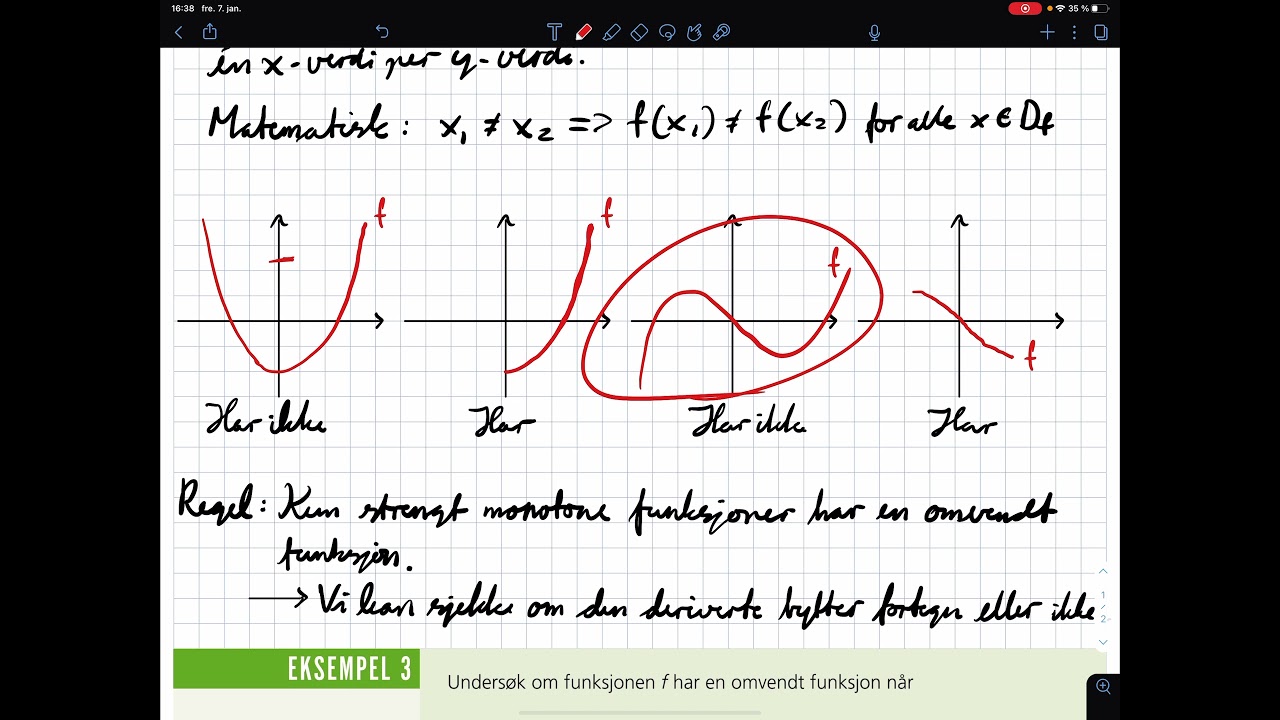 16:38 fre. 7. jan.
35 %
én x-verdi per y-verdi.
Matematisk: x₁ ≠ x₂ => f(x₁) ≠ f(x₂) for alle x ∈ Df
f f f f
Har ikke Har Har ikke Har
Regel: Kun strengt monotone funksjoner har en omvendt
funksjon.
→ Vi kan sjekke om den deriverte bytter fortegn eller ikke
1
/
2
EKSEMPEL 3
Undersøk om funksjonen f har en omvendt funksjon når